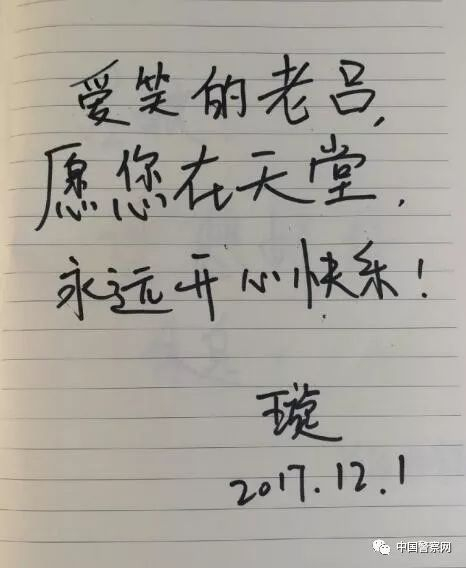 爱笑的老吕,
愿您在天堂,
永远开心快乐!
王璇
2017.12.1
中国警察网